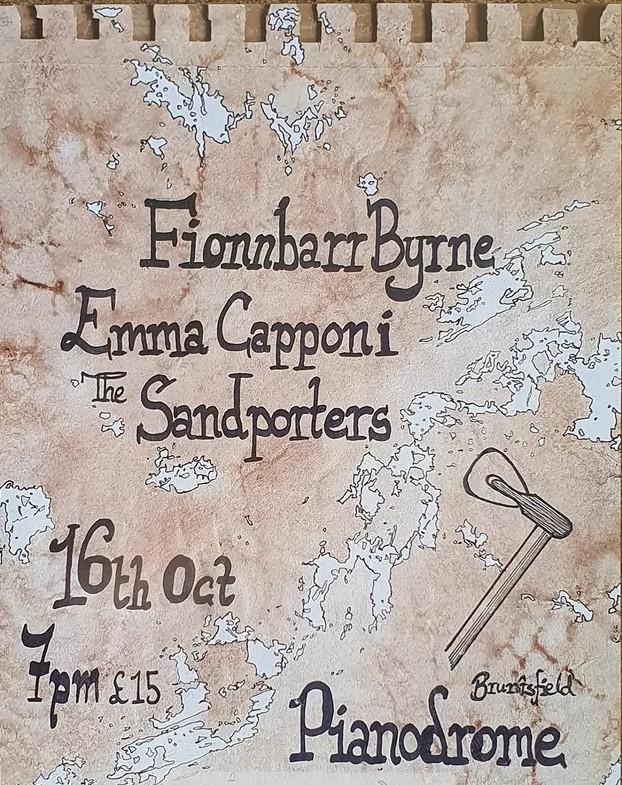 Fionnbarr Byrne
Emma Capponi
The Sandporters
16th Oct
7pm £15
Bruntsfield
Pianodrome